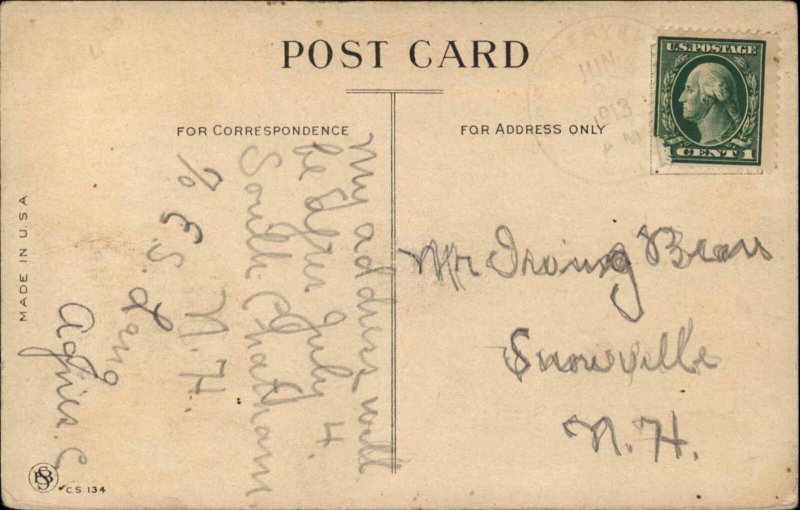 POST CARD
FOR CORRESPONDENCE
FOR ADDRESS ONLY
U.S. POSTAGE
CENT 1
JUN
1913
My address will
be after July 4.
South Chatham
N.H.
% E.S. Lang
Agnes. C
Mr Irving Bean
Snowville
N.H.
MADE IN U.S.A
C.S. 134